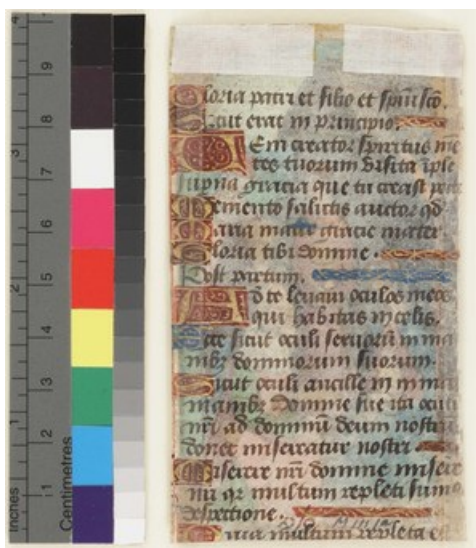 Gloria patri et filio et spiritui sco.
Sicut erat in principio.
Veni creator spiritus me
tes tuorum visita iple
superna gracia que tu creasti pecto
Memento salutis auctor qd
Maria mater gracie mater
Gloria tibi domine.
Post partum.
Ad te levavi oculos meos
qui habitas in celis.
Ecce sicut oculi servorum in ma
nibz dominorum suorum.
Sicut oculi ancille in
manibz domine sue ita oculi
nri ad dominum deum nostru
donec misereatur nostri
Miserere nri domine miser
nri qr multum repleti sumo
despectione.
Quia multum repleta e
Centimetres
1
2
3
4
5
6
7
8
9
Inches
1
2
3
4